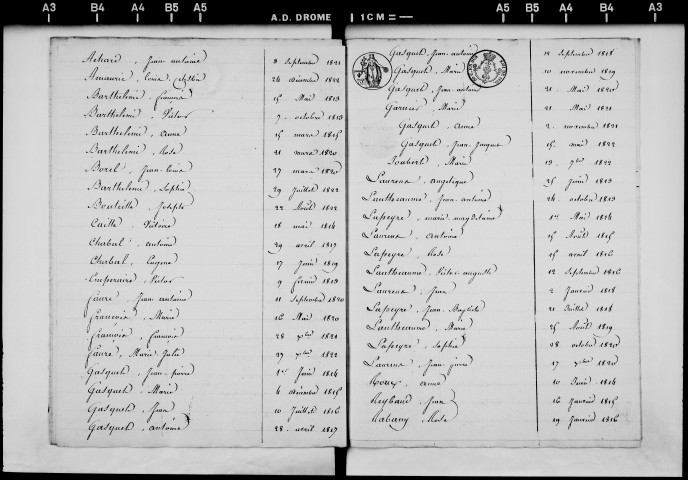 A3 B4 A4 B5 A5 A.D. DROME 1CM = A5 B5 A4 B4 A3
Achard, Jean antoine 8 Septembre 1821
Amaurie, Louis 26 décembre 1822
Barthelemi, 15 Mai 1813
Barthelemi, Victor 7 octobre 1813
Barthelemi, anne 15 mars 1815
Barthelemi, Rose 21 mars 1820
Borel, Jean Louis 27 mars 1820
Barthelemi, Sophie 29 Juillet 1822
Bouteille, Joseph 22 Août 1822
Caille, Victoire 18 mai 1816
Chabal, antoine 29 avril 1817
Chabal, Eugene 17 Juin 1819
Emperaire, Victor 9 février 1813
faure, Jean antoine 11 Septembre 1820
françois, Marie 16 Mai 1820
françois, françois 28 xbre 1821
faure, Marie Julie 27 xbre 1822
Gasquet, Jean pierre 1er Juin 1814
Gasquet, Marie 6 décembre 1815
Gasquet, Jean 10 Juillet 1816
Gasquet, antoine 28 avril 1817
Gasquet, Jean antoine 12 Septembre 1818
Gasquet, Marie 10 novembre 1819
Gasquet, Jean antoine 21 Mai 1820
Garnier, Marie 21 Mai 1821
Gasquet, anne 2 novembre 1821
Gasquet, Jean Jacques 15 mai 1822
Joubert, Marie 13 7bre 1822
Laurens, angelique 25 Juin 1813
Lautheaume, Jean antoine 26 octobre 1813
Lapeyre, marie magdelaine 1er Mai 1814
Laurens, antoine 15 Août 1815
Lapeyre, Rose 15 avril 1816
Lautheaume, Victor auguste 12 Septembre 1816
Laurens, Jean 2 Janvier 1818
Lapeyre, Jean Baptiste 21 Juillet 1818
Lautheaume, Marie 25 Août 1819
Lapeyre, Sophie 28 octobre 1820
Laurens, Jean pierre 17 xbre 1820
Roux, anne 10 Juin 1814
Reybaud, Jean 16 Janvier 1815
Rabany, Rose 19 Janvier 1816